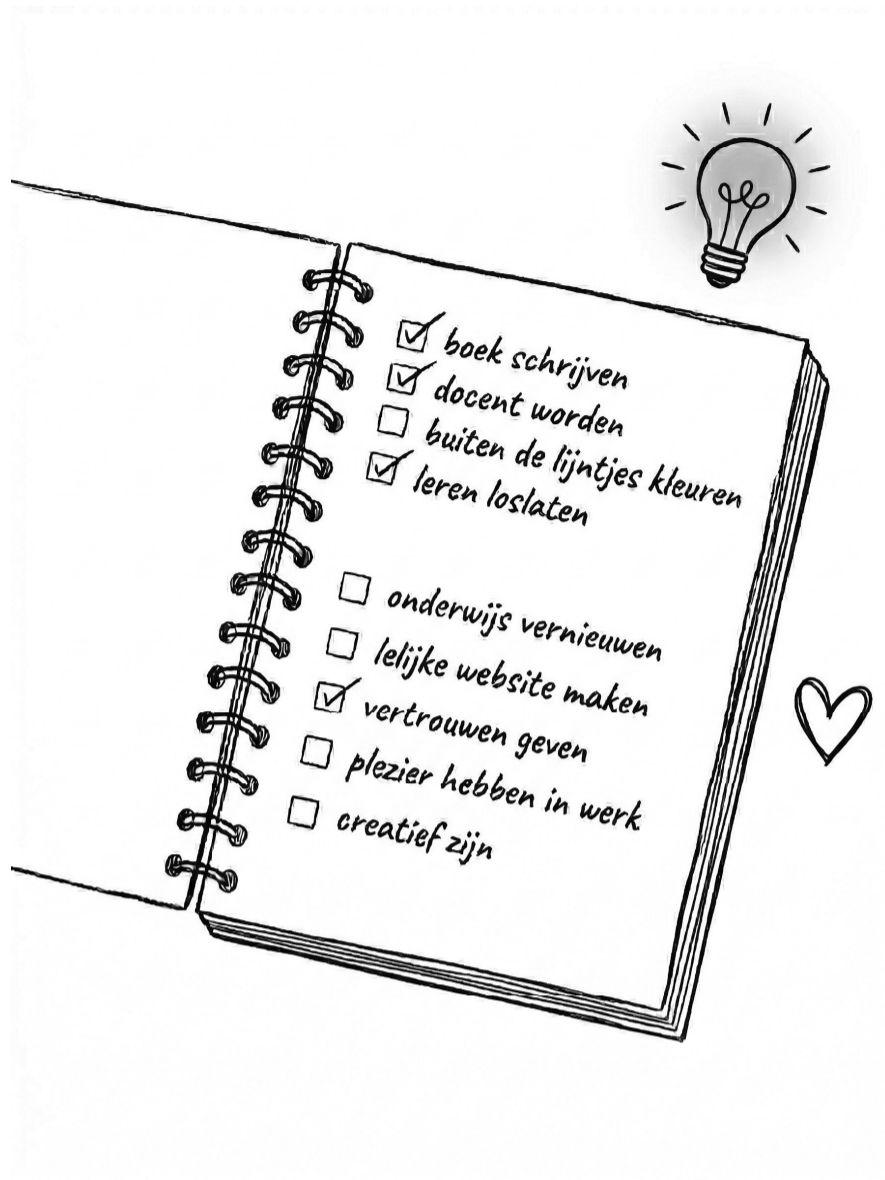 boek schrijven
docent worden
buiten de lijntjes kleuren
leren loslaten
onderwijs vernieuwen
lelijke website maken
vertrouwen geven
plezier hebben in werk
creatief zijn